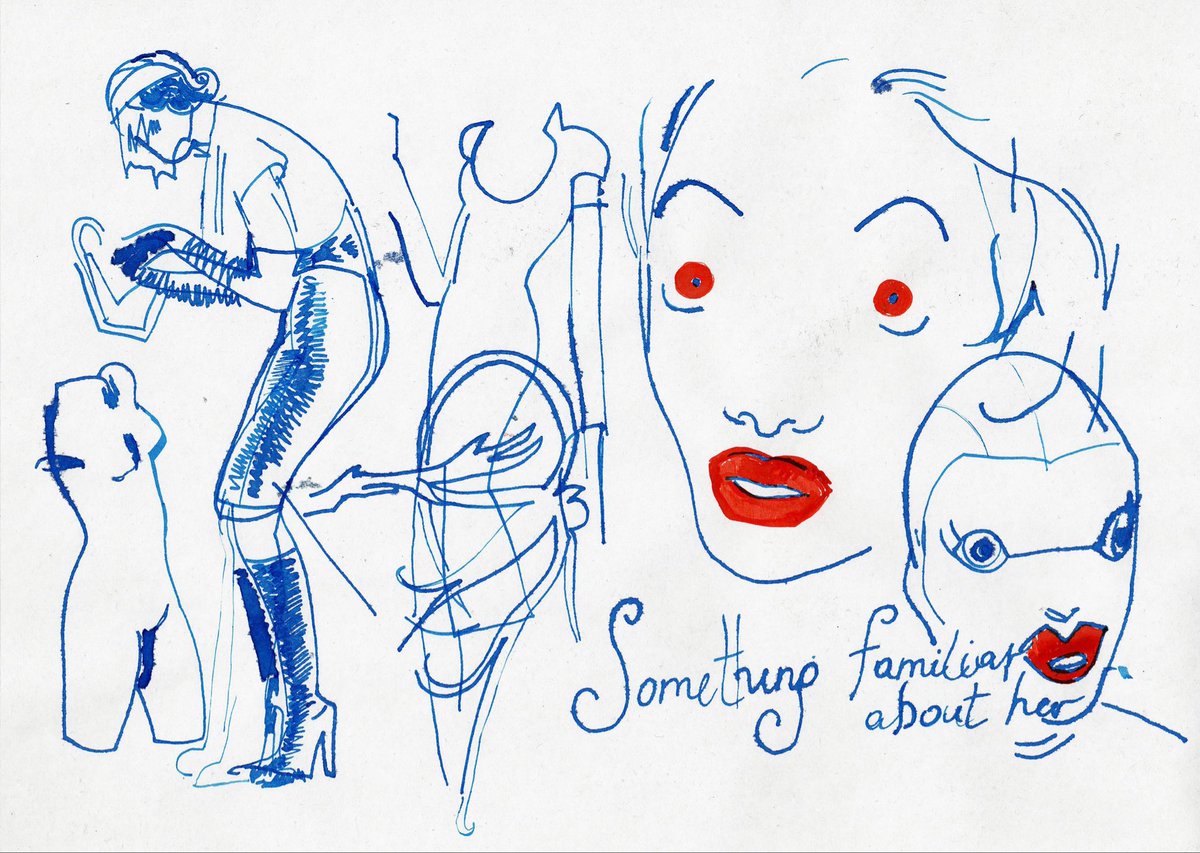 Something familiar
about her